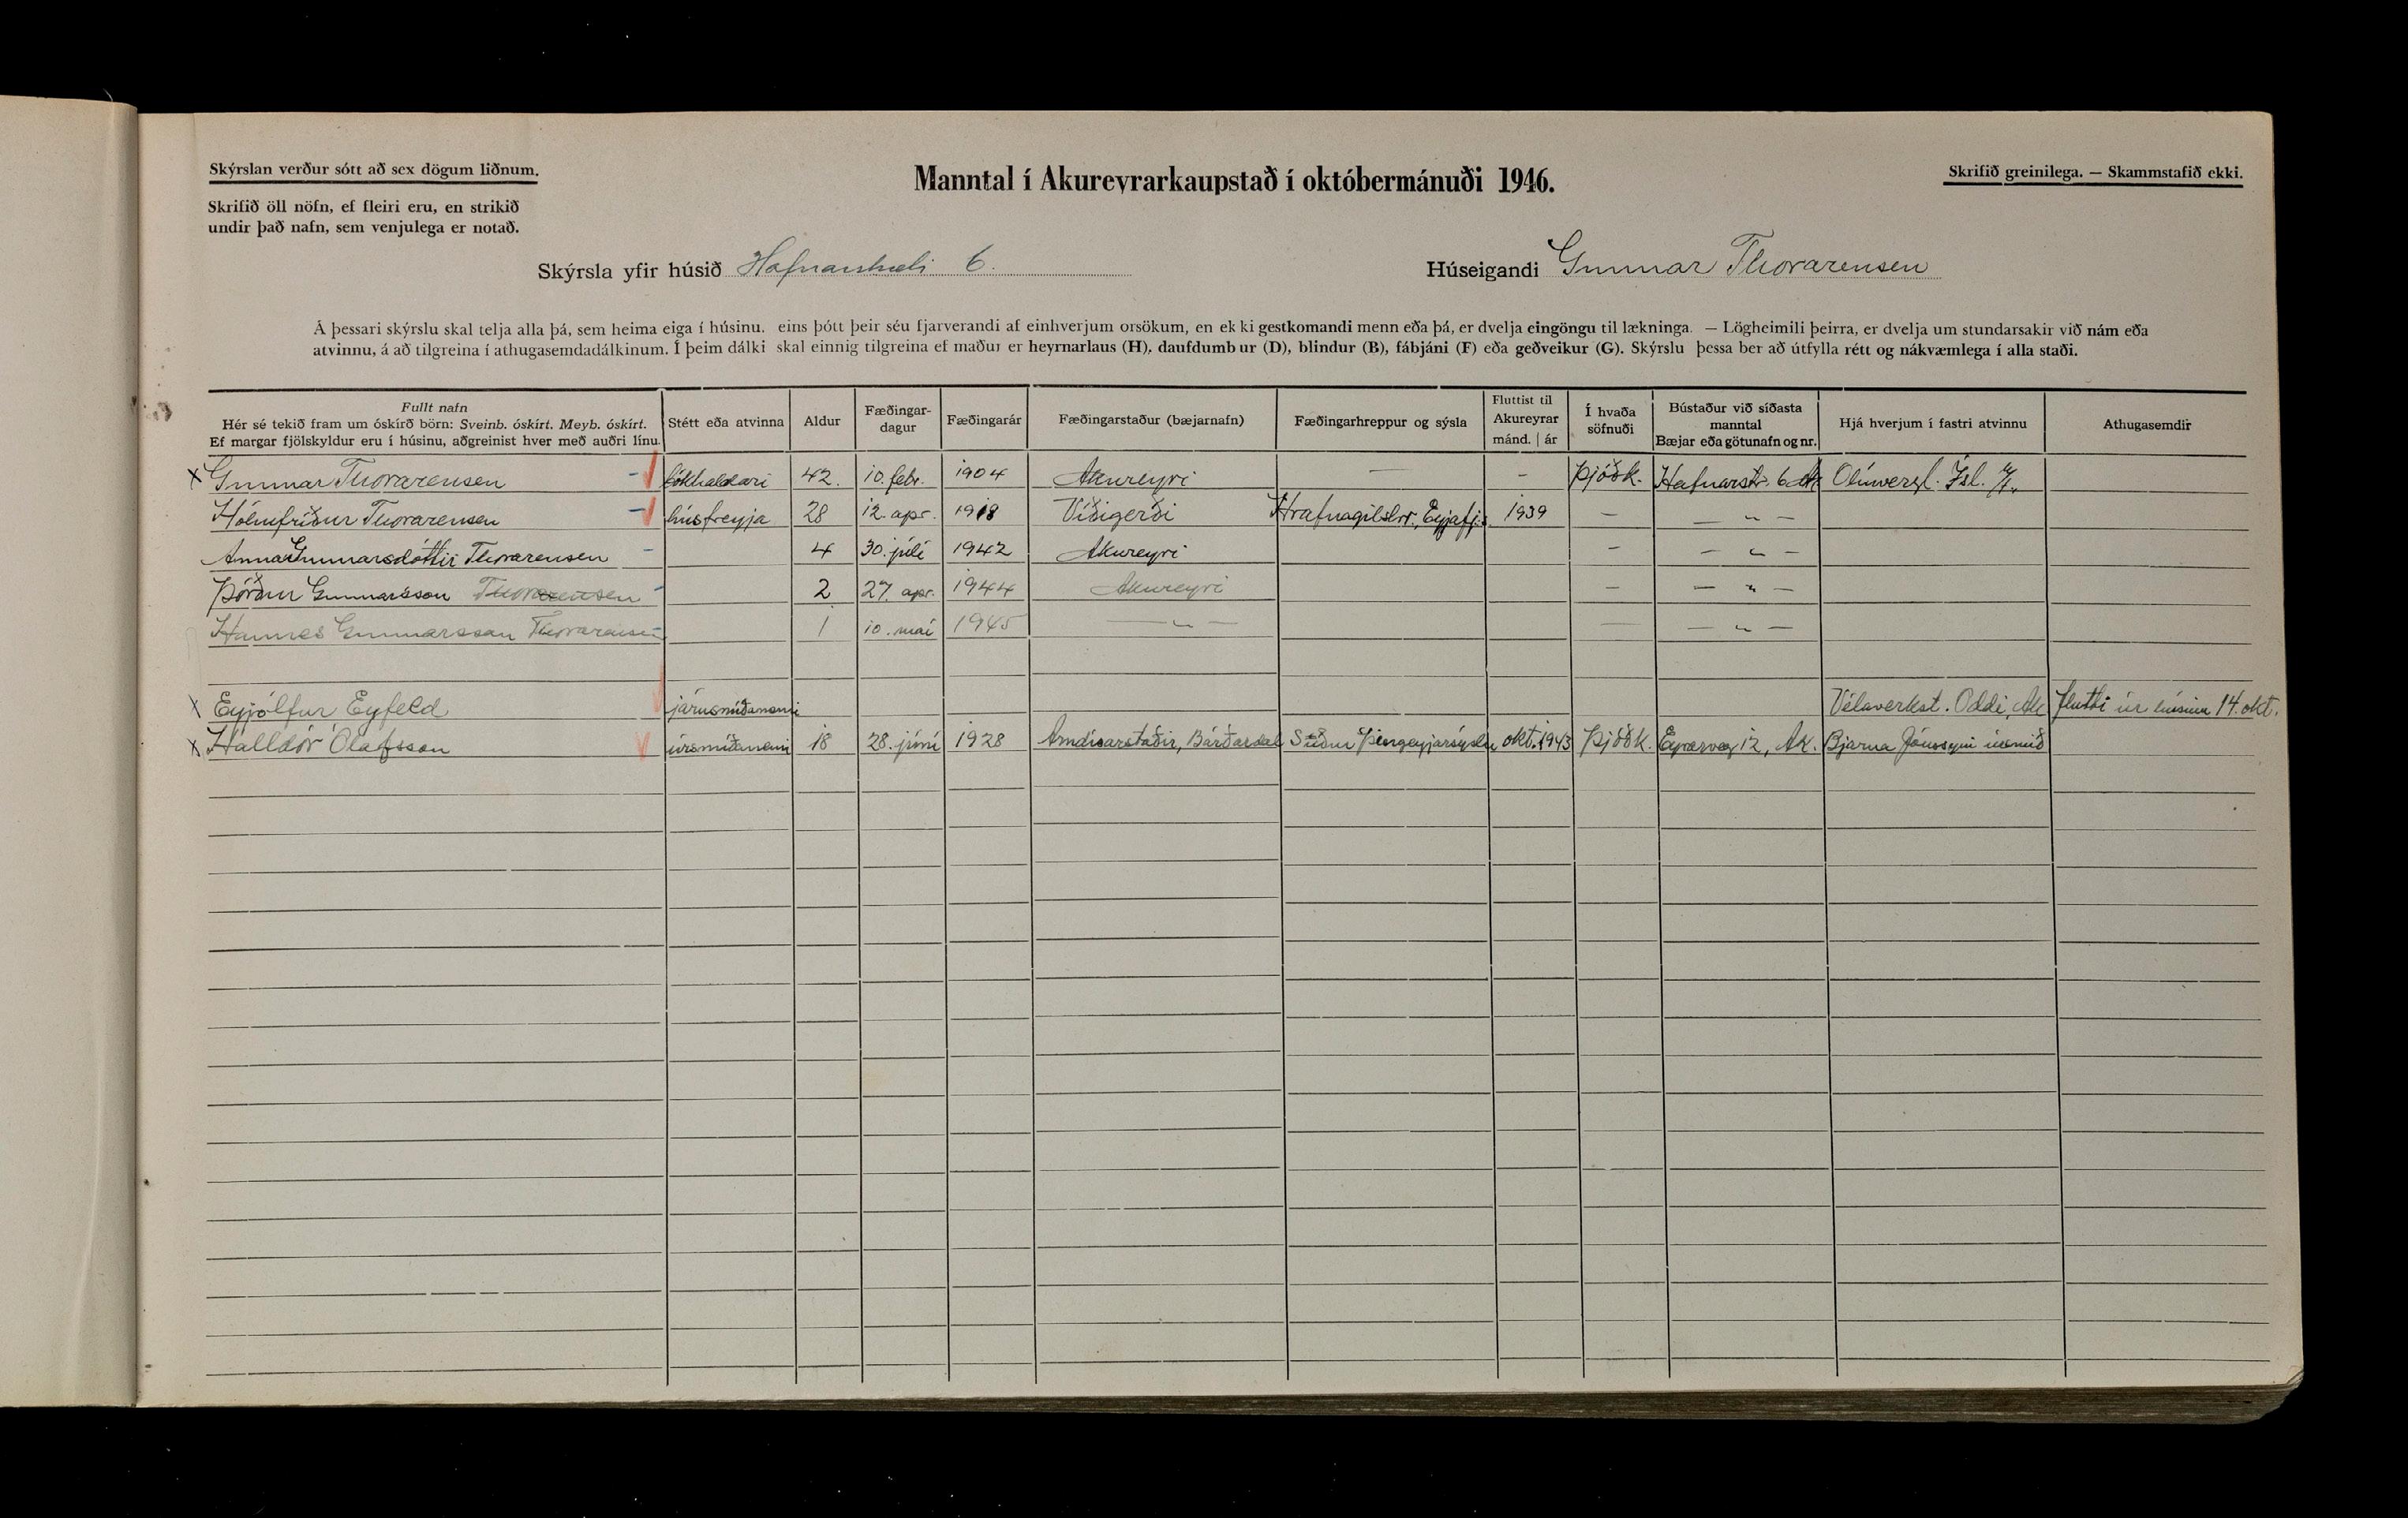 Skýrslan verður sótt að sex dögum liðnum.
Manntal í Akureyrarkaupstað í októbermánuði 1946.
Skrifið greinilega. — Skammstafið ekki.
Skrifið öll nöfn, ef fleiri eru, en strikið
undir það nafn, sem venjulega er notað.
Skýrsla yfir húsið Hafnarstræti 6.
Húseigandi Gunnar Thorarensen
Á þessari skýrslu skal telja alla þá, sem heima eiga í húsinu. eins þótt þeir séu fjarverandi af einhverjum orsökum, en ekki gestkomandi menn eða þá, er dvelja eingöngu til lækninga. — Lögheimili þeirra, er dvelja um stundarsakir við nám eða
atvinnu, á að tilgreina í athugasemdadálkinum. Í þeim dálki skal einnig tilgreina ef maður er heyrnarlaus (H), daufdumbur (D), blindur (B), fábjáni (F) eða geðveikur (G). Skýrslu þessa ber að útfylla rétt og nákvæmlega í alla staði.
Fullt nafn
Hér sé tekið fram um óskírð börn: Sveinb. óskírt. Meyb. óskírt.
Ef margar fjölskyldur eru í húsinu, aðgreinist hver með auðri línu.
Stétt eða atvinna
Aldur
Fæðingar-
dagur
Fæðingarár
Fæðingarstaður (bæjarnafn)
Fæðingarhreppur og sýsla
Fluttist til
Akureyrar
mánd. | ár
Í hvaða
söfnuði
Bústaður við síðasta
manntal
Bæjar eða götunafn og nr.
Hjá hverjum í fastri atvinnu
Athugasemdir
x Gunnar Thorarensen bókhaldari 42. 10. febr. 1904 Akureyri — - Þjóðk. Hafnarstr. 6 Ak Olíuverzl. Ísl. h/f.
Hólmfríður Thorarensen húsfreyja 28 12. apr. 1918 Víðigerði Hrafnagilshr., Eyjafj.s. 1939 — — " —
Anna Gunnarsdóttir Thorarensen 4 30. júlí 1942 Akureyri — — " —
Þórður Gunnarsson Thorarensen 2 27. apr. 1944 Akureyri — — " —
Hannes Gunnarsson Thorarensen 1 10. maí 1945 — " — — — " —
x Eyjólfur Eyfeld járnsmíðanemi Vélaverkst. Oddi, Ak flutti úr húsinu 14. okt.
x Halldór Ólafsson úrsmíðanemi 18 28. júní 1928 Arndísarstaðir, Bárðardal Suður Þingeyjarsýslu okt. 1943 Þjóðk. Eyrarveg 12, Ak. Bjarna Jónssyni úrsmið